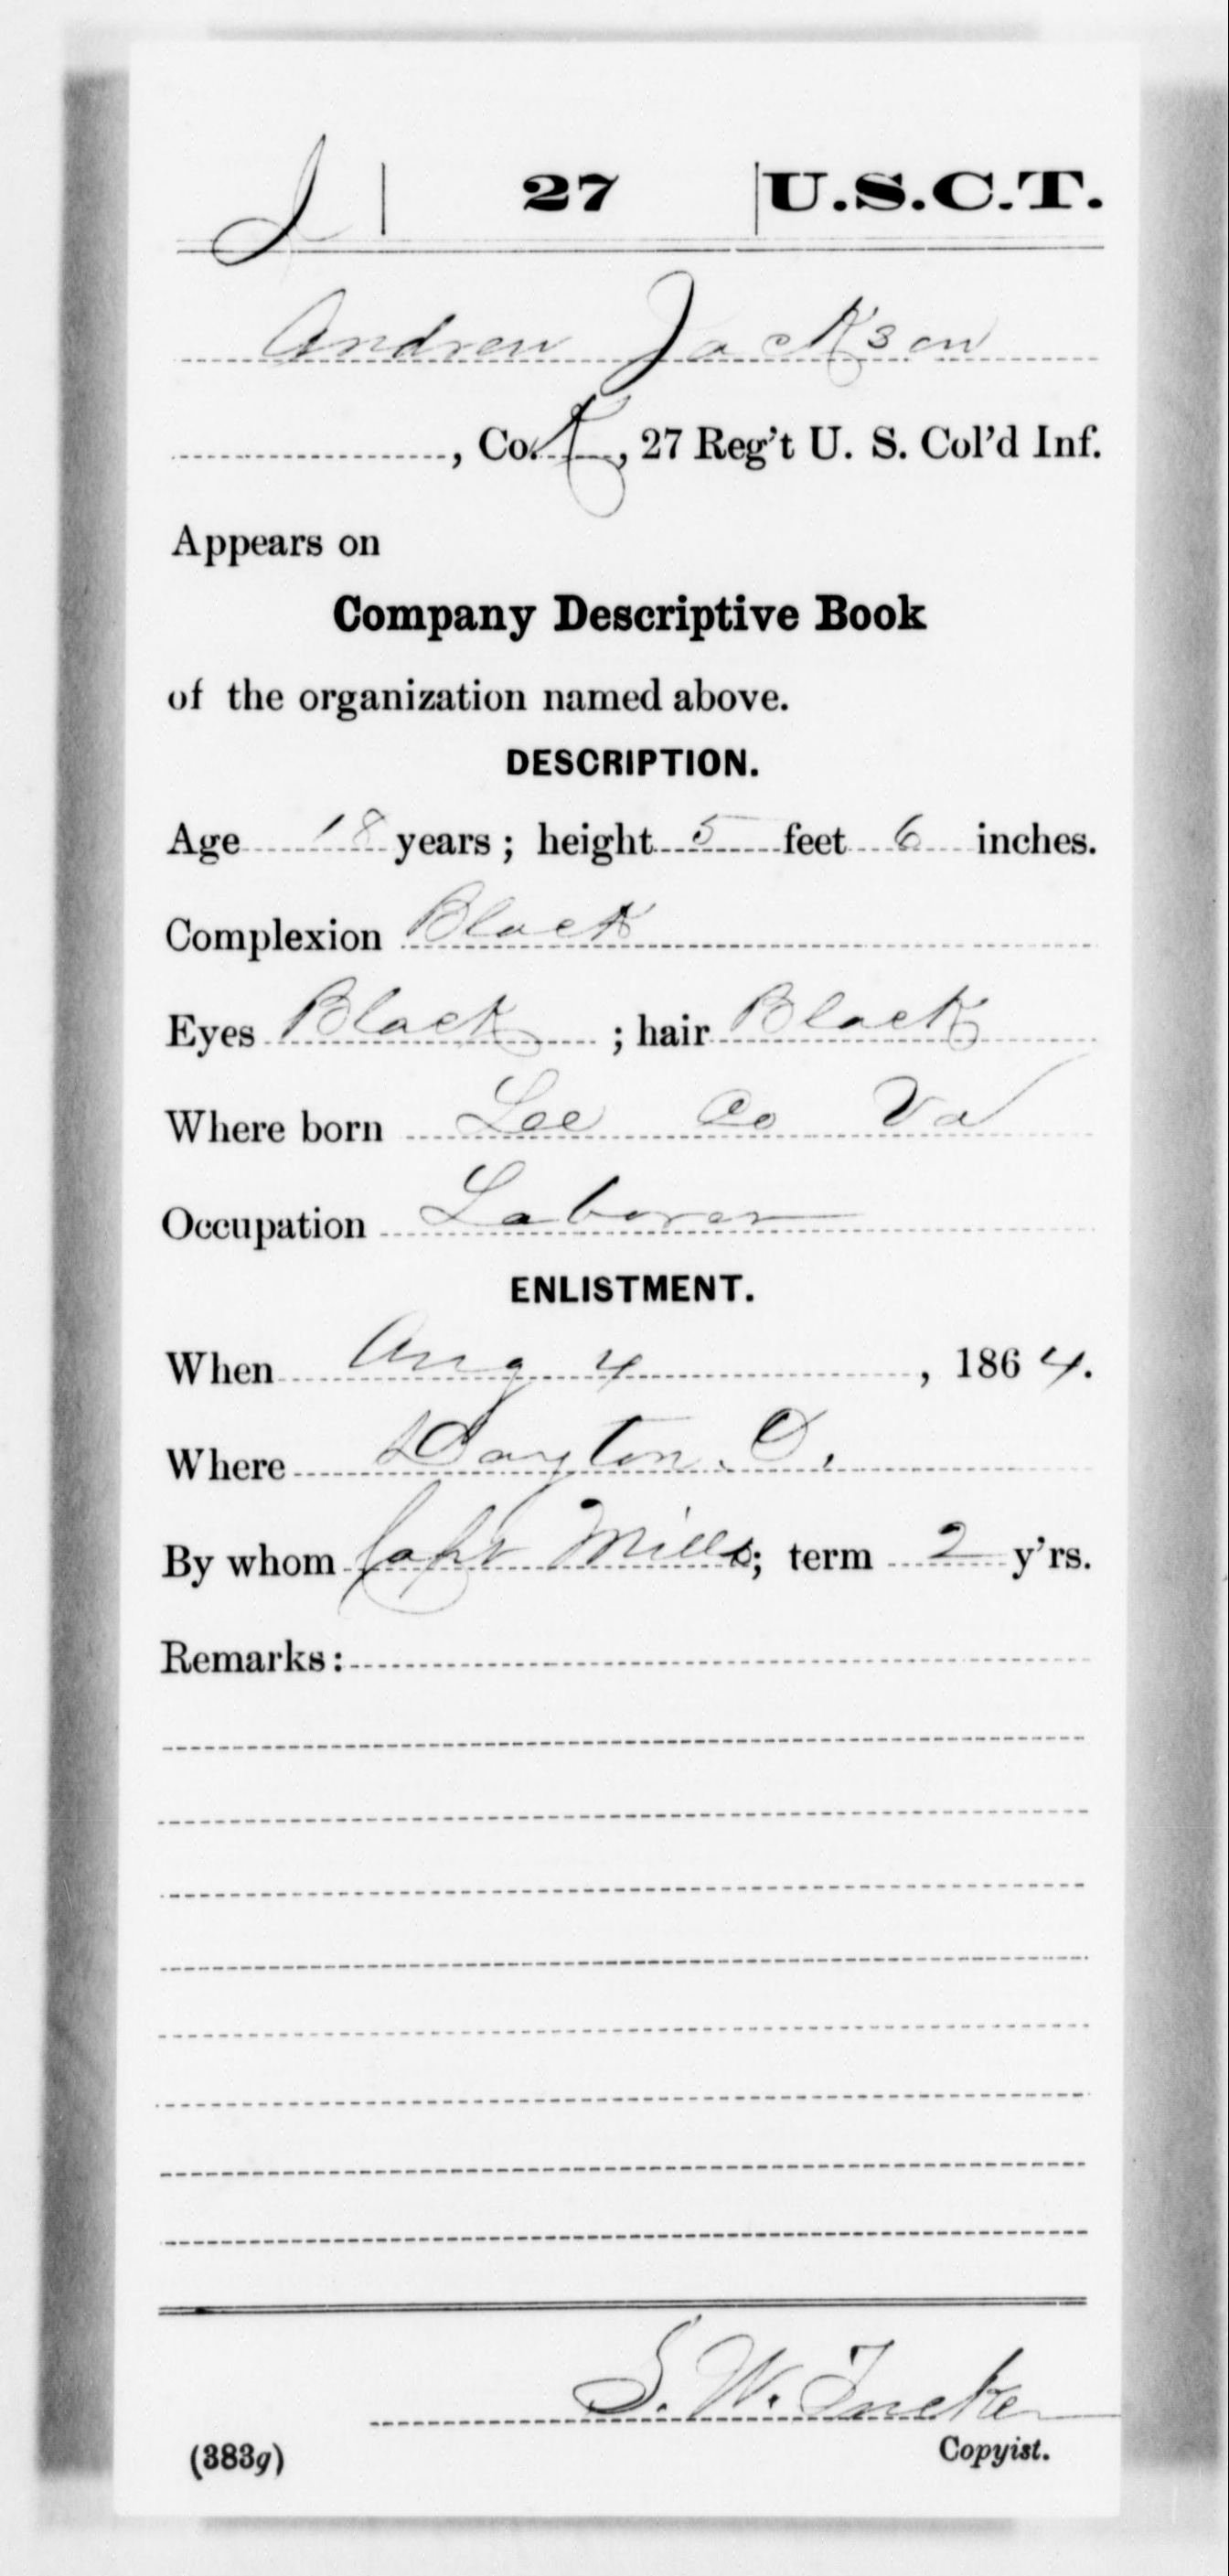 J | 27 | U.S.C.T.
Andrew Jackson
, Co. K, 27 Reg't U. S. Col'd Inf.
Appears on
Company Descriptive Book
of the organization named above.
DESCRIPTION.
Age 18 years; height 5 feet 6 inches.
Complexion Black
Eyes Black; hair Black
Where born Lee Co Va
Occupation Laborer
ENLISTMENT.
When Aug 4, 1864.
Where Dayton. O.
By whom Capt Mills; term 2 y'rs.
Remarks:
S. W. Tucker
Copyist.
(383g)